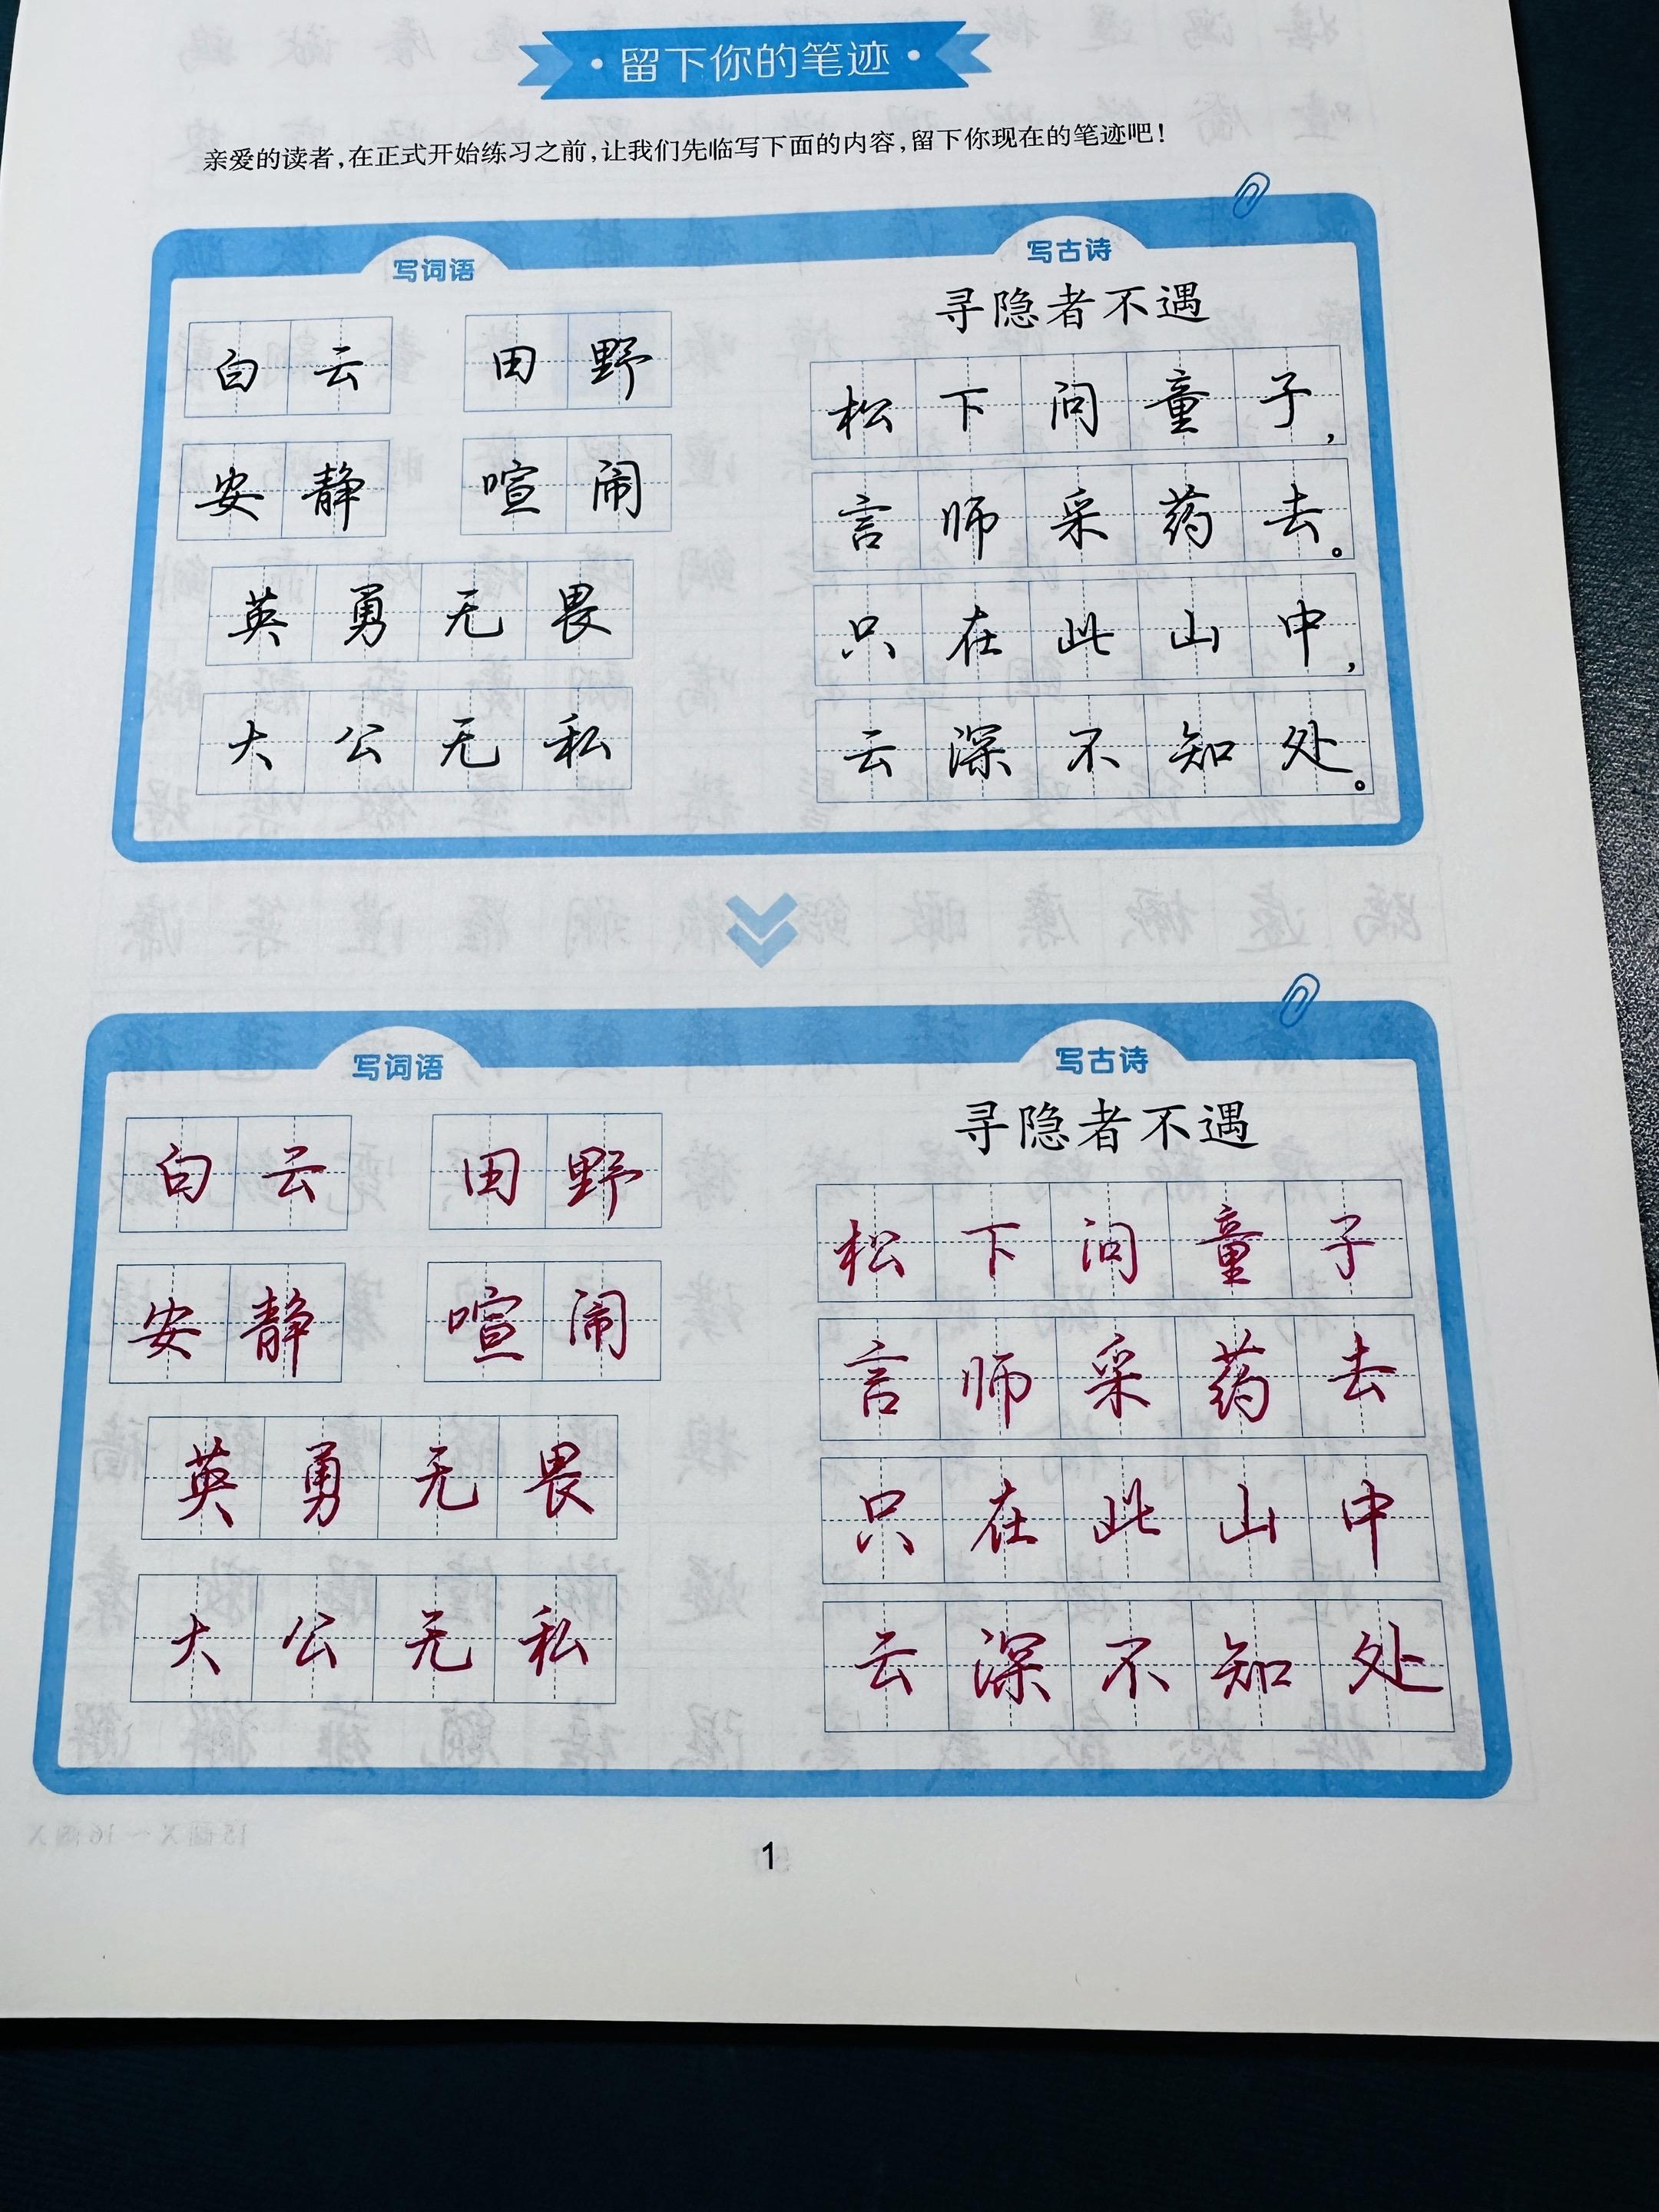 ·留下你的笔迹·
亲爱的读者,在正式开始练习之前,让我们先临写下面的内容,留下你现在的笔迹吧!
写词语
白云 田野
安静 喧闹
英勇无畏
大公无私
写古诗
寻隐者不遇
松下问童子,
言师采药去。
只在此山中,
云深不知处。
写词语
白云 田野
安静 喧闹
英勇无畏
大公无私
写古诗
寻隐者不遇
松下问童子
言师采药去
只在此山中
云深不知处
1